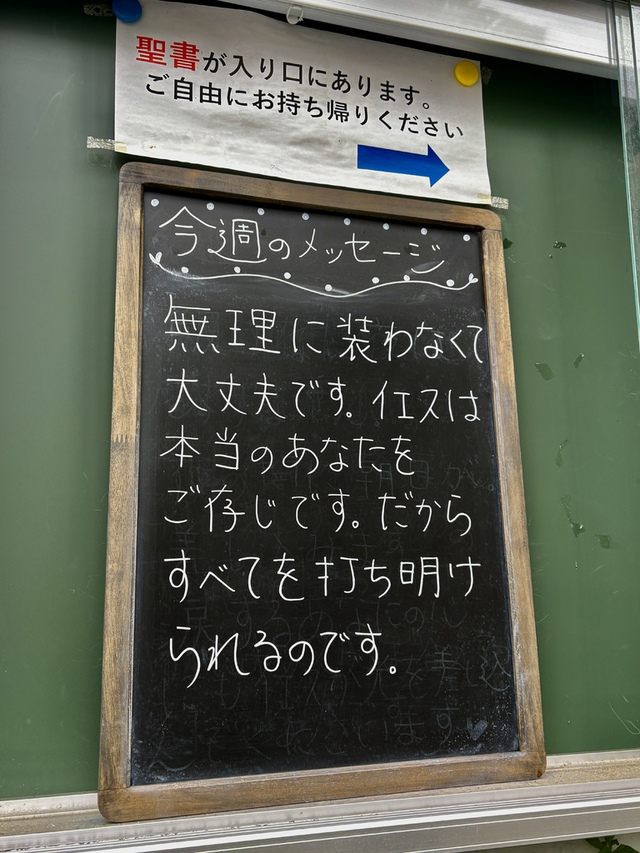 聖書が入り口にあります。
ご自由にお持ち帰りください
今週のメッセージ
無理に装わなくて
大丈夫です。イエスは
本当のあなたを
ご存じです。だから
すべてを打ち明け
られるのです。